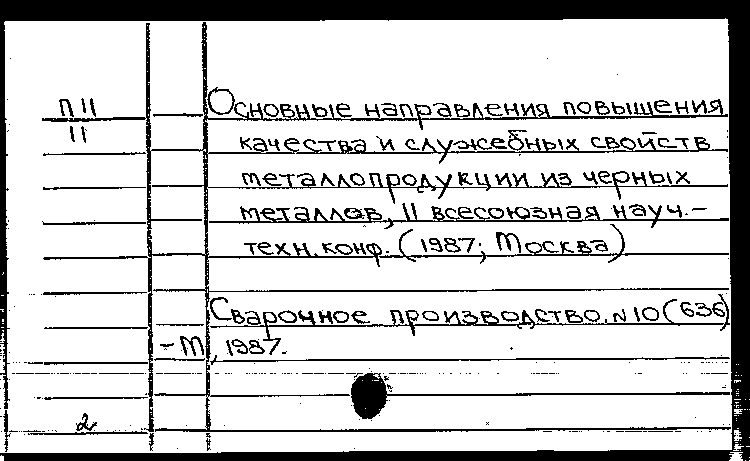 П 11
11
Основные направления повышения
качества и служебных свойств
металлопродукции из черных
металлов, II всесоюзная науч.-
техн. конф. (1987; Москва)
Сварочное производство. N 10 (636)
- М, 1987.
2